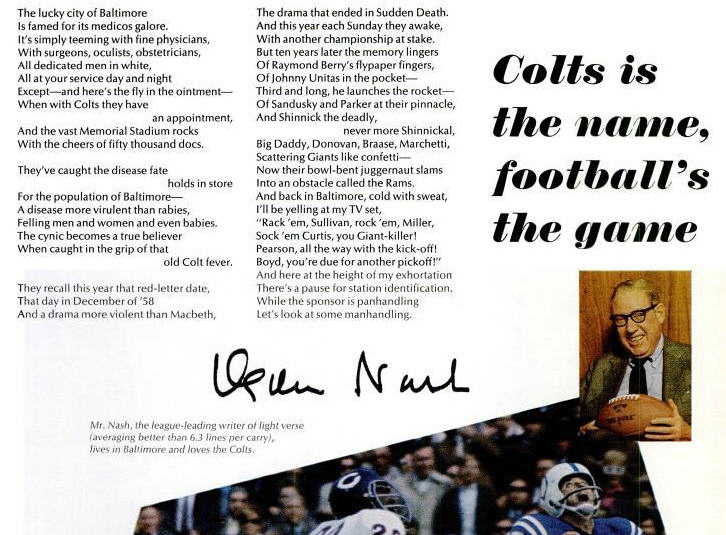 The lucky city of Baltimore
Is famed for its medicos galore.
It's simply teeming with fine physicians,
With surgeons, oculists, obstetricians,
All dedicated men in white,
All at your service day and night
Except—and here's the fly in the ointment—
When with Colts they have
an appointment,
And the vast Memorial Stadium rocks
With the cheers of fifty thousand docs.
They've caught the disease fate
holds in store
For the population of Baltimore—
A disease more virulent than rabies,
Felling men and women and even babies.
The cynic becomes a true believer
When caught in the grip of that
old Colt fever.
They recall this year that red-letter date,
That day in December of '58
And a drama more violent than Macbeth,
The drama that ended in Sudden Death.
And this year each Sunday they awake,
With another championship at stake.
But ten years later the memory lingers
Of Raymond Berry's flypaper fingers,
Of Johnny Unitas in the pocket—
Third and long, he launches the rocket—
Of Sandusky and Parker at their pinnacle,
And Shinnick the deadly,
never more Shinnickal,
Big Daddy, Donovan, Braase, Marchetti,
Scattering Giants like confetti—
Now their bowl-bent juggernaut slams
Into an obstacle called the Rams.
And back in Baltimore, cold with sweat,
I'll be yelling at my TV set,
"Rack 'em, Sullivan, rock 'em, Miller,
Sock 'em Curtis, you Giant-killer!
Pearson, all the way with the kick-off!
Boyd, you're due for another pickoff!"
And here at the height of my exhortation
There's a pause for station identification.
While the sponsor is panhandling
Let's look at some manhandling.
Colts is
the name,
football's
the game
Ogden Nash
Mr. Nash, the league-leading writer of light verse
(averaging better than 6.3 lines per carry),
lives in Baltimore and loves the Colts.
"THE DUKE"